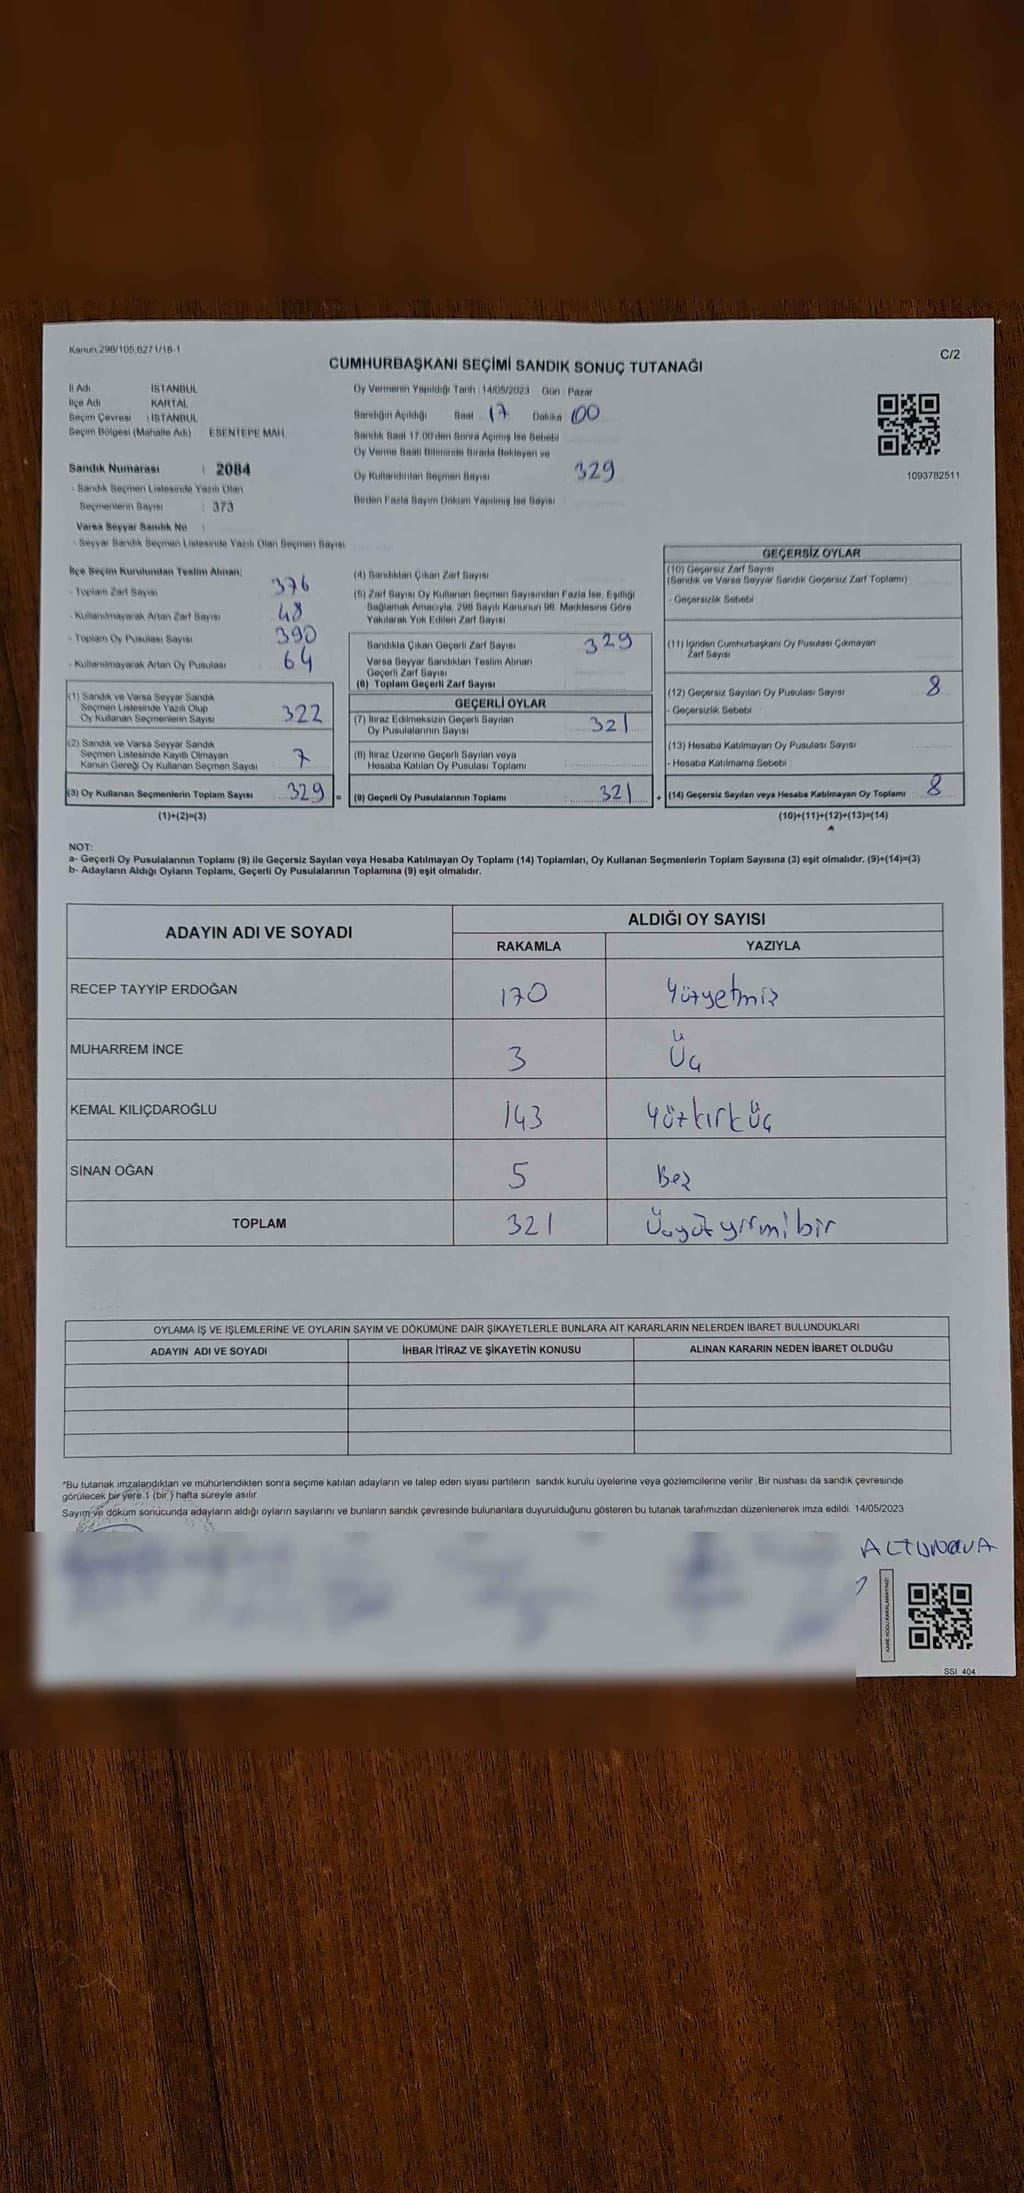 Kanun:298/105,6271/18-1
C/2
CUMHURBAŞKANI SEÇİMİ SANDIK SONUÇ TUTANAĞI
İl Adı : İSTANBUL
İlçe Adı : KARTAL
Seçim Çevresi : İSTANBUL
Seçim Bölgesi (Mahalle Adı) ESENTEPE MAH.
Sandık Numarası : 2084
- Sandık Seçmen Listesinde Yazılı Olan
Seçmenlerin Sayısı : 373
Varsa Seyyar Sandık No :
- Seyyar Sandık Seçmen Listesinde Yazılı Olan Seçmen Sayısı
Oy Vermenin Yapıldığı Tarih : 14/05/2023 Gün : Pazar
Sandığın Açıldığı Saat 17 Dakika 00
Sandık Saat 17:00'den Sonra Açımış İse Sebebi
Oy Verme Saati Bitiminde Sırada Bekleyen ve
Oy Kullandırılan Seçmen Sayısı 329
Birden Fazla Sayım Döküm Yapılmış İse Sayısı
1093782511
İlçe Seçim Kurulundan Teslim Alınan;
- Toplam Zarf Sayısı 376
- Kullanılmayarak Artan Zarf Sayısı 48
- Toplam Oy Pusulası Sayısı 390
- Kullanılmayarak Artan Oy Pusulası 64
(1) Sandık ve Varsa Seyyar Sandık
Seçmen Listesinde Yazılı Olup
Oy Kullanan Seçmenlerin Sayısı 322
(2) Sandık ve Varsa Seyyar Sandık
Seçmen Listesinde Kayıtlı Olmayan
Kanun Gereği Oy Kullanan Seçmen Sayısı 7
(3) Oy Kullanan Seçmenlerin Toplam Sayısı 329 =
(1)+(2)=(3)
(4) Sandıktan Çıkan Zarf Sayısı
(5) Zarf Sayısı Oy Kullanan Seçmen Sayısından Fazla İse, Eşitliği
Sağlamak Amacıyla, 298 Sayılı Kanunun 98. Maddesine Göre
Yakılarak Yok Edilen Zarf Sayısı
Sandıkta Çıkan Geçerli Zarf Sayısı 329
Varsa Seyyar Sandıktan Teslim Alınan
Geçerli Zarf Sayısı
(6) Toplam Geçerli Zarf Sayısı
GEÇERLİ OYLAR
(7) İtiraz Edilmeksizin Geçerli Sayılan
Oy Pusulalarının Sayısı 321
(8) İtiraz Üzerine Geçerli Sayılan veya
Hesaba Katılan Oy Pusulası Toplamı
(9) Geçerli Oy Pusulalarının Toplamı 321 +
GEÇERSİZ OYLAR
(10) Geçersiz Zarf Sayısı
(Sandık ve Varsa Seyyar Sandık Geçersiz Zarf Toplamı)
- Geçersizlik Sebebi
(11) İçinden Cumhurbaşkanı Oy Pusulası Çıkmayan
Zarf Sayısı
(12) Geçersiz Sayılan Oy Pusulası Sayısı 8
- Geçersizlik Sebebi
(13) Hesaba Katılmayan Oy Pusulası Sayısı
- Hesaba Katılmama Sebebi
(14) Geçersiz Sayılan veya Hesaba Katılmayan Oy Toplamı : 8
(10)+(11)+(12)+(13)=(14)
NOT:
a- Geçerli Oy Pusulalarının Toplamı (9) ile Geçersiz Sayılan veya Hesaba Katılmayan Oy Toplamı (14) Toplamları, Oy Kullanan Seçmenlerin Toplam Sayısına (3) eşit olmalıdır. (9)+(14)=(3)
b- Adayların Aldığı Oyların Toplamı, Geçerli Oy Pusulalarının Toplamına (9) eşit olmalıdır.
ADAYIN ADI VE SOYADI ALDIĞI OY SAYISI
RAKAMLA YAZIYLA
RECEP TAYYİP ERDOĞAN 170 Yüzyetmiş
MUHARREM İNCE 3 Üç
KEMAL KILIÇDAROĞLU 143 Yüzkırk Üç
SİNAN OĞAN 5 Beş
TOPLAM 321 Üçyüz yirmi bir
OYLAMA İŞ VE İŞLEMLERİNE VE OYLARIN SAYIM VE DÖKÜMÜNE DAİR ŞİKAYETLERLE BUNLARA AİT KARARLARIN NELERDEN İBARET BULUNDUKLARI
ADAYIN ADI VE SOYADI İHBAR İTİRAZ VE ŞİKAYETİN KONUSU ALINAN KARARIN NEDEN İBARET OLDUĞU
*Bu tutanak imzalandıktan ve mühürlendikten sonra seçime katılan adayların ve talep eden siyasi partilerin sandık kurulu üyelerine veya gözlemcilerine verilir. Bir nüshası da sandık çevresinde
görülecek bir yere 1 (bir ) hafta süreyle asılır.
Sayım ve döküm sonucunda adayların aldığı oyların sayılarını ve bunların sandık çevresinde bulunanlara duyurulduğunu gösteren bu tutanak tarafımızdan düzenlenerek imza edildi. 14/05/2023
ALTUNOVA
KARE KODU KARALAMAYINIZ!
SSI 404